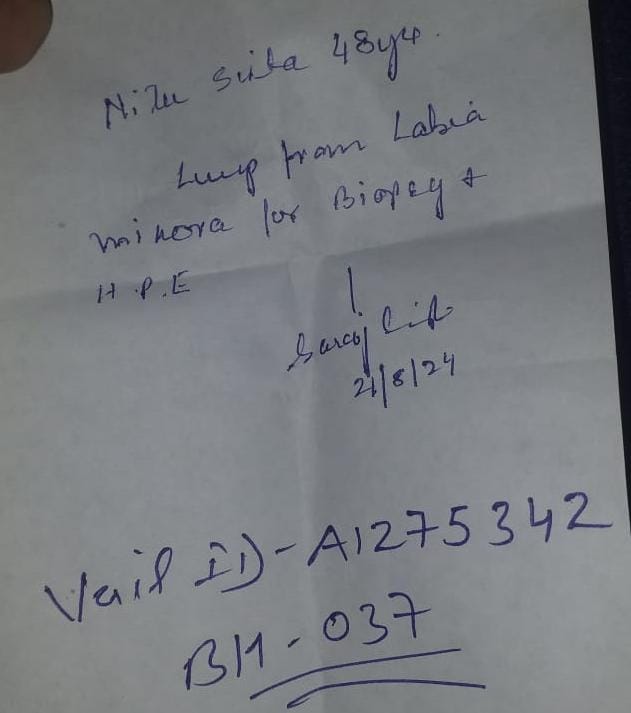 Nilu Sinha 48yr.
Lump from Labia
minora for Biopsy +
H.P.E
Saroj
21/8/24
Vail ID-A1275342
BH-037